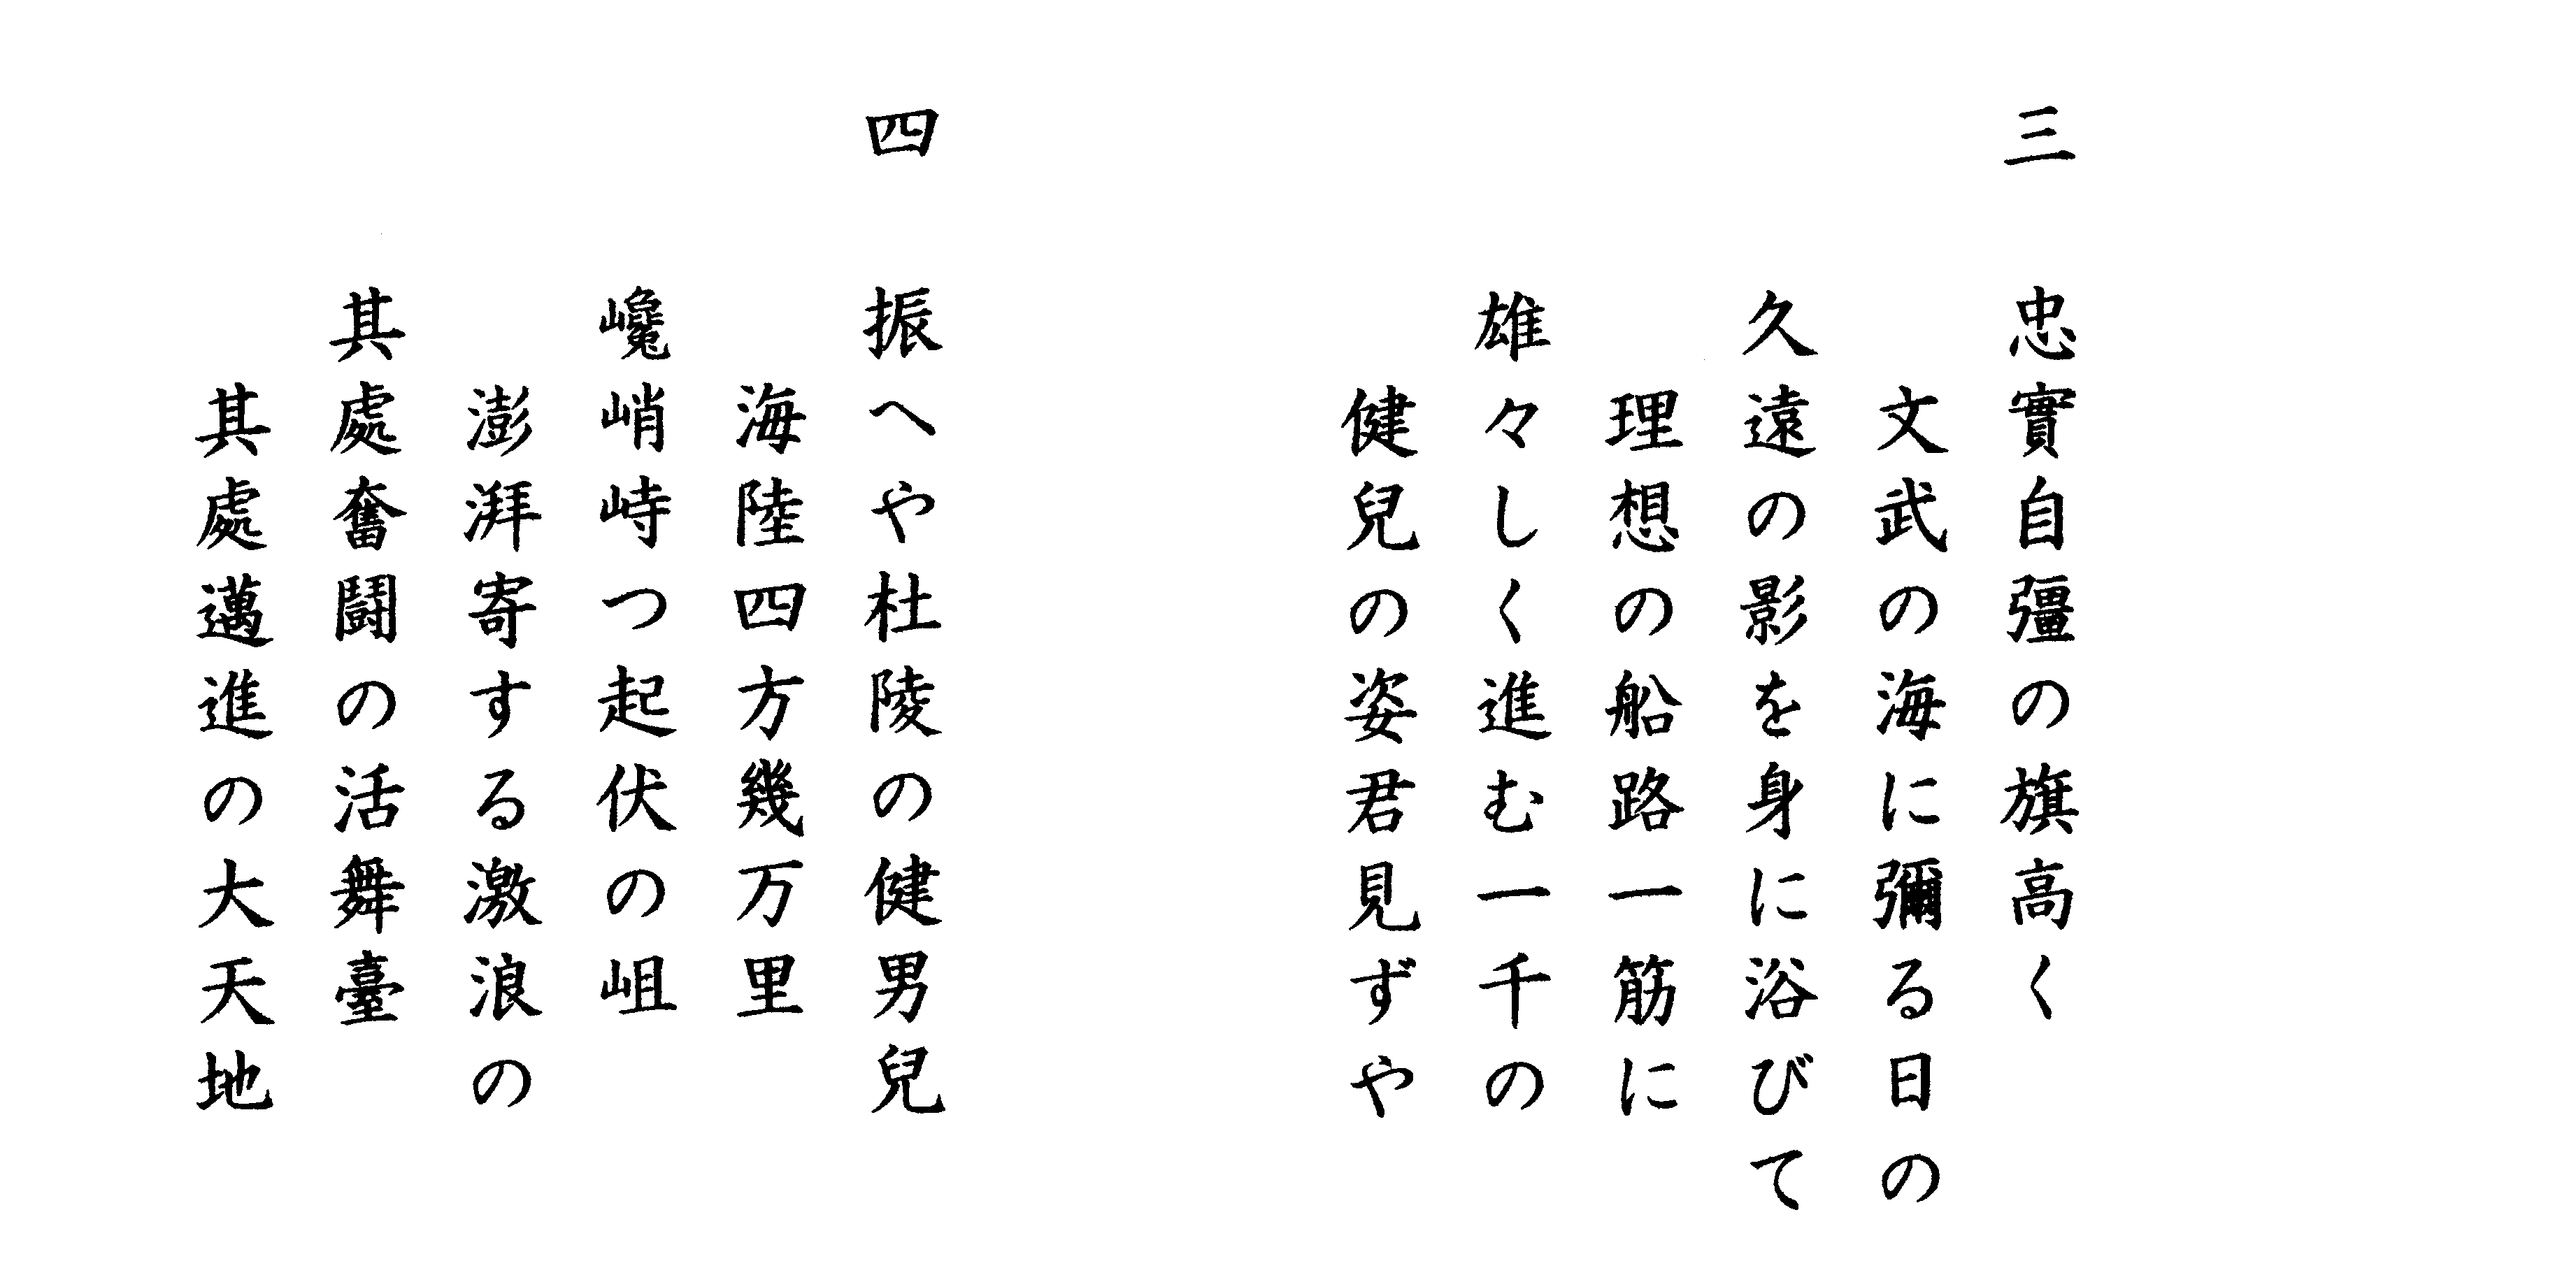 三 忠實自彊の旗高く
文武の海に彌る日の
久遠の影を身に浴びて
理想の船路一筋に
雄々しく進む一千の
健兒の姿君見ずや
四 振へや杜陵の健男兒
海陸四方幾万里
巉峭峙つ起伏の岨
澎湃寄する激浪の
其處奮鬪の活舞臺
其處邁進の大天地